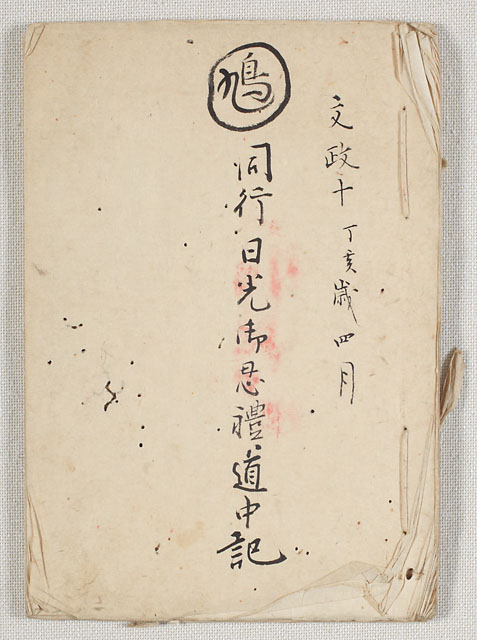 文政十丁亥歳四月
鳩
同行日光御恩禮道中記